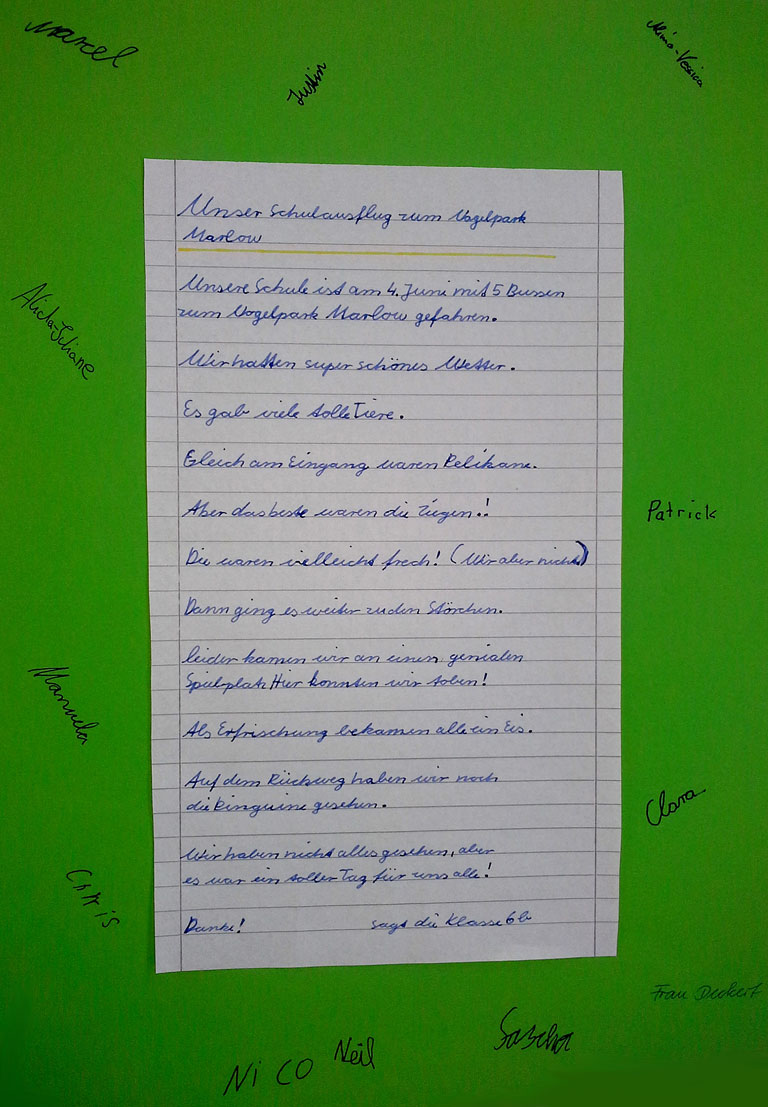 Marcel
Justin
Alicia-Liliane
Unser Schulausflug zum Vogelpark
Marlow
Unsere Schule ist am 4. Juni mit 5 Bussen
zum Vogelpark Marlow gefahren.
Wir hatten super schönes Wetter.
Es gab viele tolle Tiere.
Gleich am Eingang waren Pelikane.
Aber das beste waren die Ziegen!
Die waren vielleicht frech! (Wir aber nicht)
Dann ging es weiter zu den Störchen.
leider kamen wir an einen genialen
Spielplatz Hier konnten wir toben!
Als Erfrischung bekamen alle ein Eis.
Auf dem Rückweg haben wir noch
die Pinguine gesehen.
Wir haben nicht alles gesehen, aber
es war ein toller Tag für uns alle!
Danke! sagt die Klasse 6b
Patrick
Manuela
Clara
Chris
Frau Deckert
Sascha
Neil
NiCO